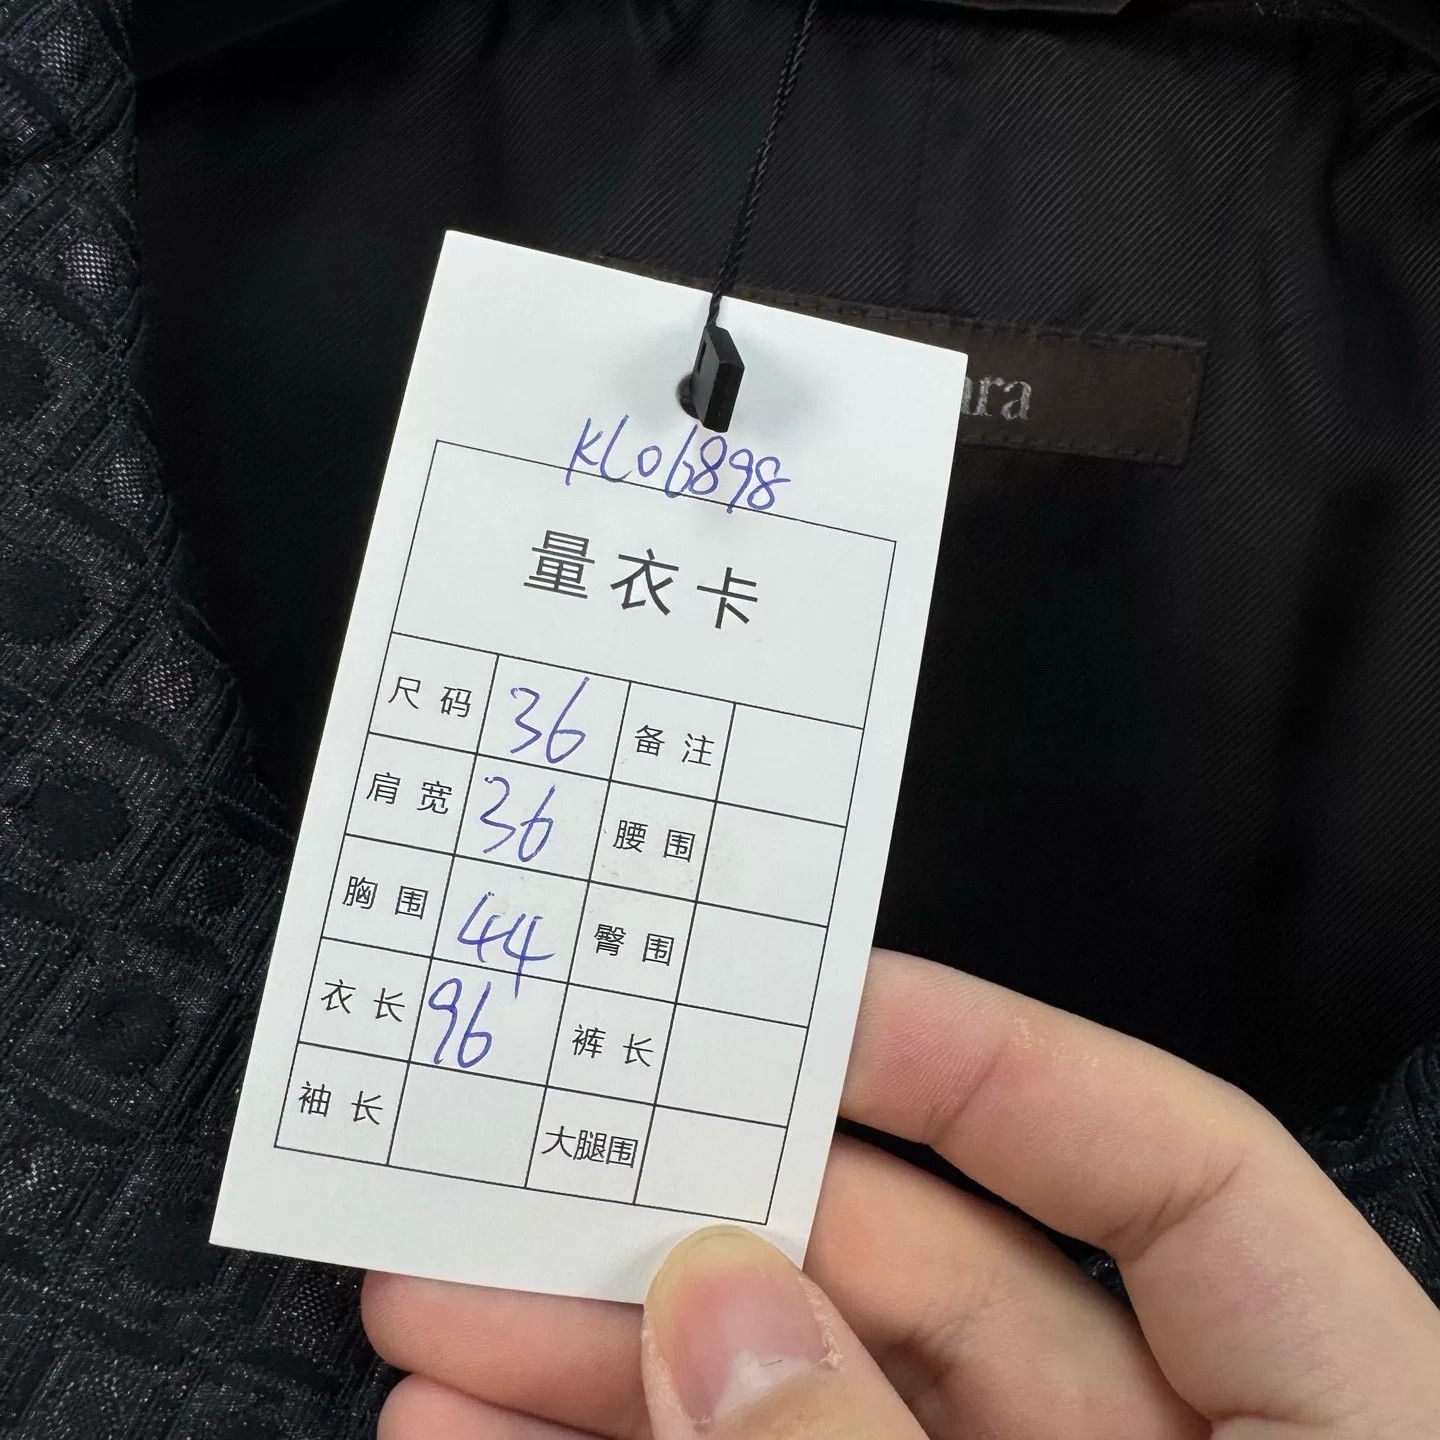 KL06898
量衣卡
尺码 36 备注
肩宽 36 腰围
胸围 44 臀围
衣长 96 裤长
袖长 大腿围